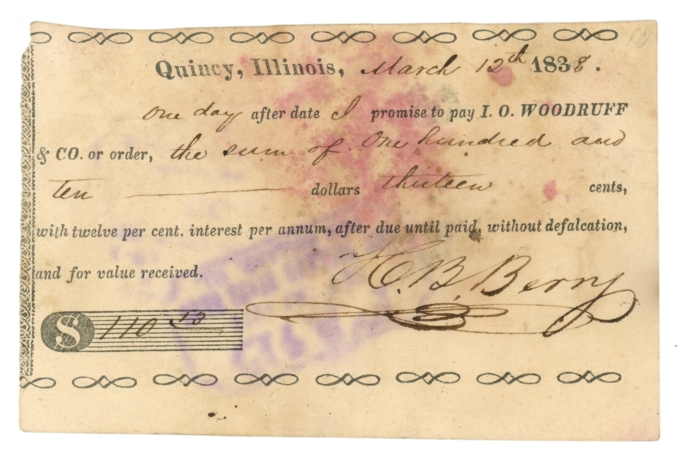 Quincy, Illinois, March 12th 1838.
One day after date I promise to pay I. O. WOODRUFF
& CO. or order, the sum of One hundred and
ten dollars thirteen cents,
with twelve per cent. interest per annum, after due until paid, without defalcation,
and for value received. H. B. Berry
$ 110 13